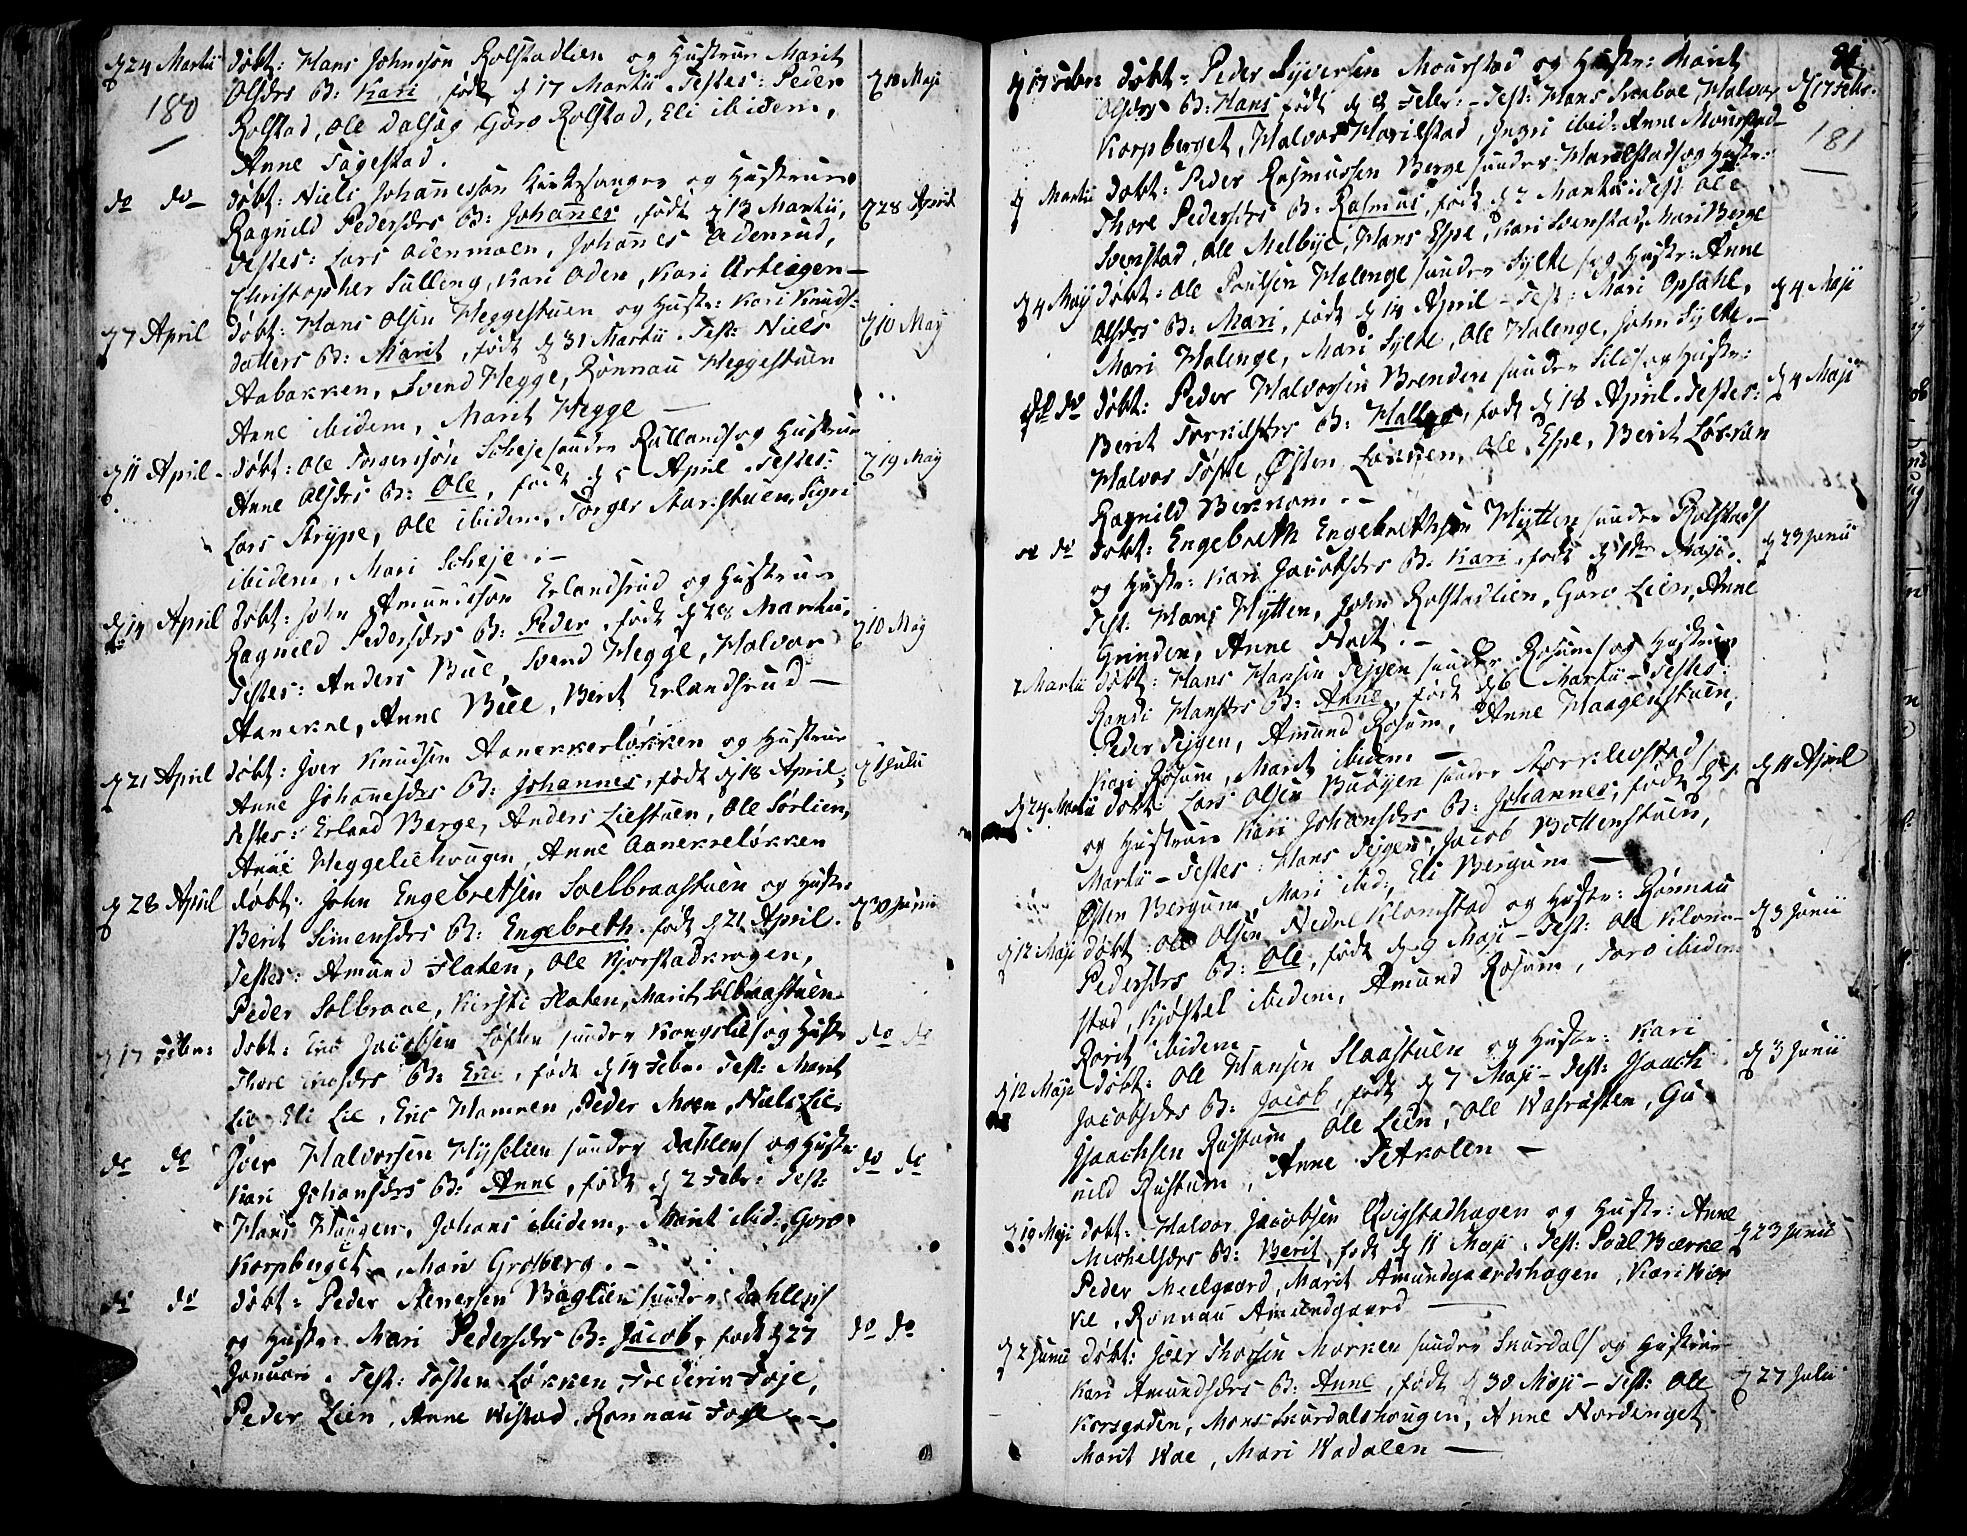 180
d 24 Martii døbt: Hans Johnsøn Rolstadlien og Hustrue Marit
Olsdrs B: Kari, født d 17 Martii. Testes: Peder
d 10 Maji
Rolstad, Ole Dalsæg, Goro Rolstad, Eli ibidem,
Anne Fogestad.
do do døbt: Niels Johannessøn og Hustrue
Ragnild Pedersdrs B: Johannes, født d 13 Martii,
d 28 April
Testes: Lars Odenmoen, Johannes Odenrud,
Christopher Sulleng, Kari Oden, Kari
d 7 April døbt: Hans Olsen Heggestuen og Hustr: Kari Knuds-
datters B: Marit, født d 31 Martii. Test: Niels
d 10 May
Aabakken, Svend Hegge, Rønnau Heggestuen
Anne ibidem, Marit Hegge —
d 11 April - døbt: Ole Torgersøn Scheje under Rullands og Hustrue
Anne Olsdrs B: Ole, født d 5 April Testes:
d 19 May
Lars Strype, Ole ibidem, Torger Stuen, Sigri
ibidem, Mari Scheje. —
d 14 April døbt: John Amundsøn Erlandsrud og Hustrue
Ragnild Pedersdrs B: Peder, født d 28 Martii,
d 10 May
Testes: Anders Bue, Svend Hegge, Halvor
Aanekre, Anne Bue, Berit Erlandsrud —
d 21 April døbt: Iver Knudsen Aanekreløkken og Hustrue
Anne Johannesdrs B: Johannes, født d 18 April,
d 1 Julii
Testes: Erland Berge, Anders Liestuen, Ole Sørlien,
Anne Heggeliehougen, Anne Aanekreløkken
d 28 April døbt: John Engebretsen Solbraastuen og Hustr:
Berit Simensdrs B: Engebreth, født d 21 April.
d 30 Junii
Testes: Amund Flaten, Ole Kjorstadkrogen,
Peder Solbraae, Kirsti Flaten, Marit Solbraastuen
d 17 Febr: døbt: Eric Jacobsen Loften under Kongslies og Hustr:
do do
Thore Ericsdrs B: Eric, født d 14 Febr. Test: Marit
Lie, Eli Lie, Eric Hammen, Peder Moen, Niels Lie.
do do Iver Halvorsen Hyselien under Dahlens og Hustr:
do do
Kari Johansdrs B: Anne, født d 2 Febr: Test:
Hans Haugen, Johans ibidem, Marit ibid:, Goro
Korpberget, Mari Grotberg. —
do do døbt: Peder Stenersen Baglien under Dahlens
og Hustr: Mari Pedersdrs B: Jacob, født d 27
do do
Januari. Test: Tosten Løkken, Frederik Foje,
Peder Lien, Anne Wistad, Rønnau Foje —
181
d 17 Febr: døbt: Peder Syversen Mourstad og Hustr: Marit
Olsdrs B: Hans født d 2 Febr: - Test: Hans Skaboe, Halvor
d 17 Febr.
Korpberget, Halvor Harilstad, Ingri ibid: Anne Mourstad
d Martii døbt: Peder Rasmussen Berge under Harilstads og Hustr:
Thore Pedersdrs B: Rasmus, født d 2 Martii Test: Ole
Svenstad, Ole Melbye, Hans Espe, Kari Svenstad, Mari Berge
d 4 Maij døbt: Ole Poulsen Halenge under Sylte og Hustr: Anne
d 4 Maji
Olsdrs B: Mari, født d 14 April - Test: Mari Opsahl,
Mari Halenge, Mari Sylte, Ole Halenge, John Sylte. —
do do døbt: Peder Halvorsen Brenden under Sils og Hustr:
d 4 Maji
Berit Torkildsdrs B: Halvor, født d 18 April. Testes:
Halvor Tofte, Østen Løkken, Ole Espe, Berit Løkken
Ragnild Berknom. —
do do døbt: Engebreth Engebrethsen Hytten under Rolstads
d 23 Junii
og Hustr: Kari Jacobsdrs B: Kari, født d 1 Maji.
Test: Hans Hytten, John Rolstadlien, Goro Lien, Anne
Grinden, Anne Stadt. —
Martii døbt: Hans Hansen Tejgen under Rosums og Hustrue
Randi Hansdrs B: Anne, født d 6 Martii - Testes:
Peder Tejgen, Amund Rosum, Anne Haagenstuen,
Kari Rosum, Marit ibidem —
d 24 Martii døbt: Lars Olsen Buøyen under
d 11 April
og Hustrue Kari Johansdrs B: Johannes, født d
Martii - Testes: Hans Tejgen, Jacob Bottenstuen,
Østen Bergum, Mari ibid:, Eli Bergum —
d 12 Maji døbt: Ole Olsen Nedre Klomstad og Hustr: Rønnau
d 3 Junii
Pedersdrs B: Ole, født d 9 Maji - Test: Ole Klom-
stad, Kjøstel ibidem, Amund Rosum, Toro ibidem
Rønit ibidem
d 12 Maji døbt: Ole Hansen Slaastuen og Hustr: Kari
d 3 Junii
Jacobsdrs B: Jacob, født d 7 Maji - Test: Isaach
Isaachsen Rustum, Ole Lien, Ole Wasrusten, Gu-
nild Rustum, Anne Setkolen —
d 19 Maji døbt: Halvor Jacobsen Qvigstadhagen og Hustr: Anne
d 23 Junii
Michelsdrs B: Berit, født d 11 Maji. Test: Poul Bærke
Peder Meelgaard, Marit Amundgaardshagen, Kari Bær-
ke, Rønnau Amundgaard —
d 2 Junii døbt: Iver Thorsen Morken under Snurdals og Hustrue
d 27 Julii
Kari Amundsdrs B: Anne, født d 30 Maji - Test: Ole
Korsgaden, Mons Snurdalshougen, Anne Nordenget
Marit Wae, Mari Wadalen —